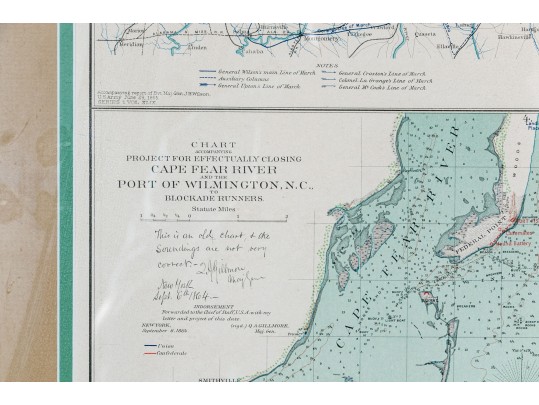 Meridian
Linden
Selma
Montgomery
Tuskegee
Cusseta
Hawkinsville
NOTES
General Wilson's main Line of March
Auxiliary Columns
General Upton's Line of March
General Croxton's Line of March
Colonel La Grange's Line of March
General McCook's Line of March
Accompanying report of Bvt. Maj. Gen. J.H. Wilson,
U.S. Army June 29, 1865.
SERIES 1 VOL. XLIX
CHART
ACCOMPANYING
PROJECT FOR EFFECTUALLY CLOSING
CAPE FEAR RIVER
AND THE
PORT OF WILMINGTON, N.C.,
TO
BLOCKADE RUNNERS.
Statute Miles
This is an old chart, & the
Soundings are not very
correct.- Q A Gillmore
Maj Gen
New York
Sept. 6th 1864-
INDORSEMENT
Forwarded to the Chief of Staff, U.S.A. with my
letter and project of this date
NEW YORK,
September 6, 1864.
(Sgd.) Q.A. GILLMORE,
Maj. Gen.
Union
Confederate
SMITHVILLE
CAPE FEAR RIVER
FEDERAL POINT
WOODS